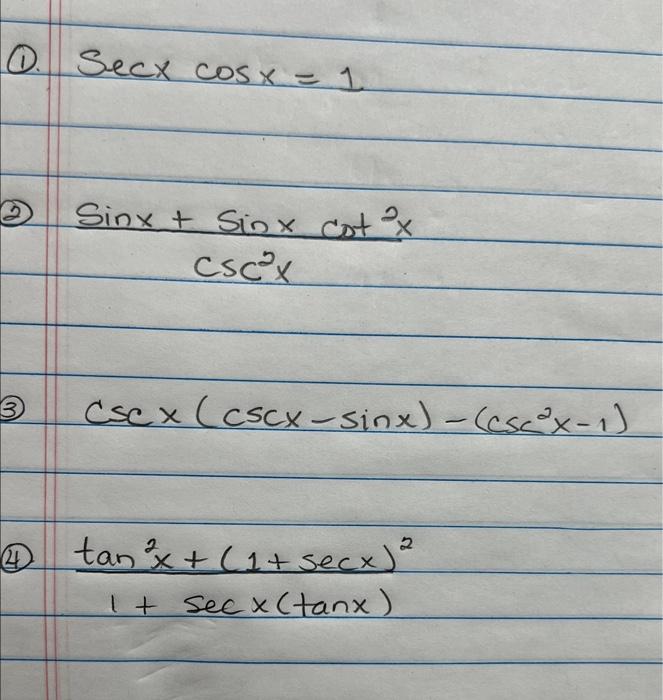 ①. Secx cosx = 1
② Sinx + Sinx cot²x
csc²x
③ cscx (cscx - sinx) - (csc²x - 1)
④ tan²x + (1 + secx)²
1 + secx(tanx)